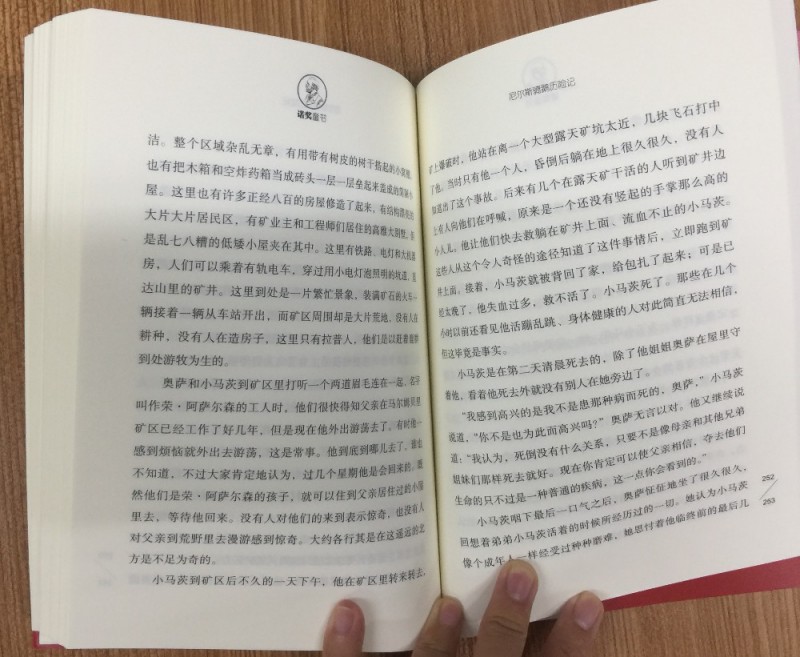 诺奖童书
洁。整个区域杂乱无章，有用带有树皮的树干搭起的小窝棚，
也有把木箱和空炸药箱当成砖头一层一层垒起来造成的简陋小
屋。这里也有许多正经八百的房屋修造了起来，有结构
大片大片居民区，有矿业主和工程师们居住的高雅大别墅，但
是乱七八糟的低矮小屋夹在其中。这里有铁路、电灯和大机器
房，人们可以乘着有轨电车，穿过用小电灯泡照明的坑道，直
达山里的矿井。这里到处是一片繁忙景象，装满矿石的火车一
辆接着一辆从车站开出，而矿区周围却是大片荒地，没有人在
耕种，没有人在造房子，这里只有拉普人，他们是以赶着驯鹿
到处游牧为生的。
奥萨和小马茨到矿区里打听一个两道眉毛连在一起、名字
叫作荣·阿萨尔森的工人时，他们很快得知父亲在马尔姆贝里
矿区已经工作了好几年，但是现在他外出游荡去了。有时他一
感到烦恼就外出去游荡，这是常事。他到底到哪儿去了，谁也
不知道，不过大家肯定地认为，过几个星期他是会回来的。既
然他们是荣·阿萨尔森的孩子，就可以住到父亲居住过的小屋
里去，等待他回来。没有人对他们的来到表示惊奇，也没有人
对父亲到荒野里去漫游感到惊奇。大约各行其是在这遥远的北
方是不足为奇的。
小马茨到矿区后不久的一天下午，他在矿区里转来转去，
尼尔斯骑鹅历险记
矿上爆破时，他站在离一个大型露天矿坑太近，几块飞石打中
了他。当时只有他一个人，昏倒后躺在地上很久很久，没有人
知道出了这个事故。后来有几个在露天矿干活的人听到矿井边
上有人向他们在呼喊，原来是一个还没有竖起的手掌那么高的
小人儿，他让他们快去救躺在矿井上面、流血不止的小马茨。
这些人从这个令人奇怪的途径知道了这件事情后，立即跑到矿
井上面。接着，小马茨就被背回了家，给包扎了起来；可是已
经太晚了，他失血过多，救不活了。小马茨死了。那些在几个
小时以前还看见他活蹦乱跳、身体健康的人对此简直无法相信，
但这毕竟是事实。
小马茨是在第二天清晨死去的，除了他姐姐奥萨在屋里守
着他，看着他死去外就没有别人在她旁边了。
“我感到高兴的是我不是患那种病而死的，奥萨，”小马茨
说道，“你不是也为此而高兴吗？”奥萨无言以对。他又继续说
道：“我认为，死倒没有什么关系，只要不是像母亲和其他兄弟
姐妹们那样死去就好。现在你肯定可以使父亲相信，夺去他们
生命的只不过是一种普通的疾病，这一点你会看到的。”
小马茨咽下最后一口气之后，奥萨怔怔地坐了很久很久，
回想着弟弟小马茨活着的时候所经历过的一切。她认为小马茨
像个成年人一样经受过种种磨难，她思忖着他临终前的最后几
262
263